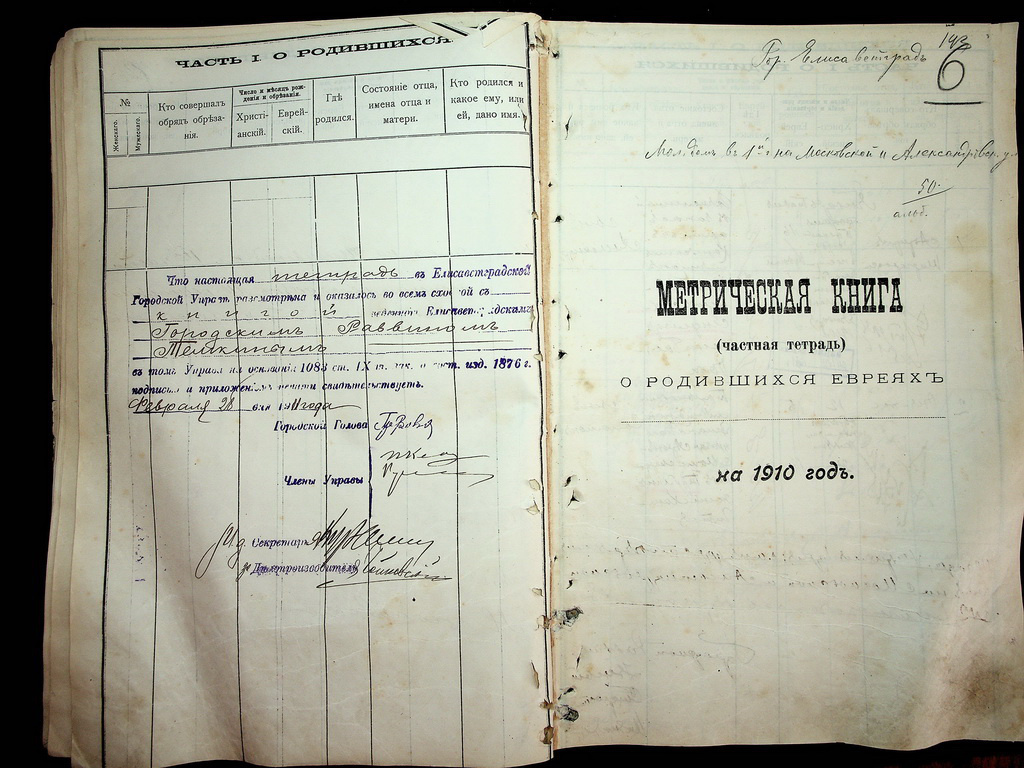 ЧАСТЬ I. О РОДИВШИХСЯ
№
Женскаго.
Мужескаго.
Кто совершалъ
обрядъ обрѣза-
нія.
Число и мѣсяцъ рож-
денія и обрѣзанія.
Христі-
анскій.
Еврей-
скій.
Гдѣ
родился.
Состояніе отца,
имена отца и
матери.
Кто родился и
какое ему, или
ей, дано имя.
Что настоящая тетрадь въ Елисаветградской
Городской Управѣ разсмотрѣна и оказалось во всемъ сходной съ
книгой веденной Елисаветградскимъ
Городскимъ Раввиномъ
Темкинымъ
въ томъ Управа на основаніи 1083 ст. IX т. зак. о сост. изд. 1876 г.
подписью и приложеніемъ печати свидѣтельствуетъ.
Февраля 28 дня 1911 года
Городской Голова
Члены Управы
И. д. Секретаря
Дѣлопроизводитель
142
6
Гор. Елисаветградъ
Мол. домъ въ 1й на Московской и Александровск. ул.
50.
МЕТРИЧЕСКАЯ КНИГА
(частная тетрадь)
О РОДИВШИХСЯ ЕВРЕЯХЪ
на 1910 годъ.